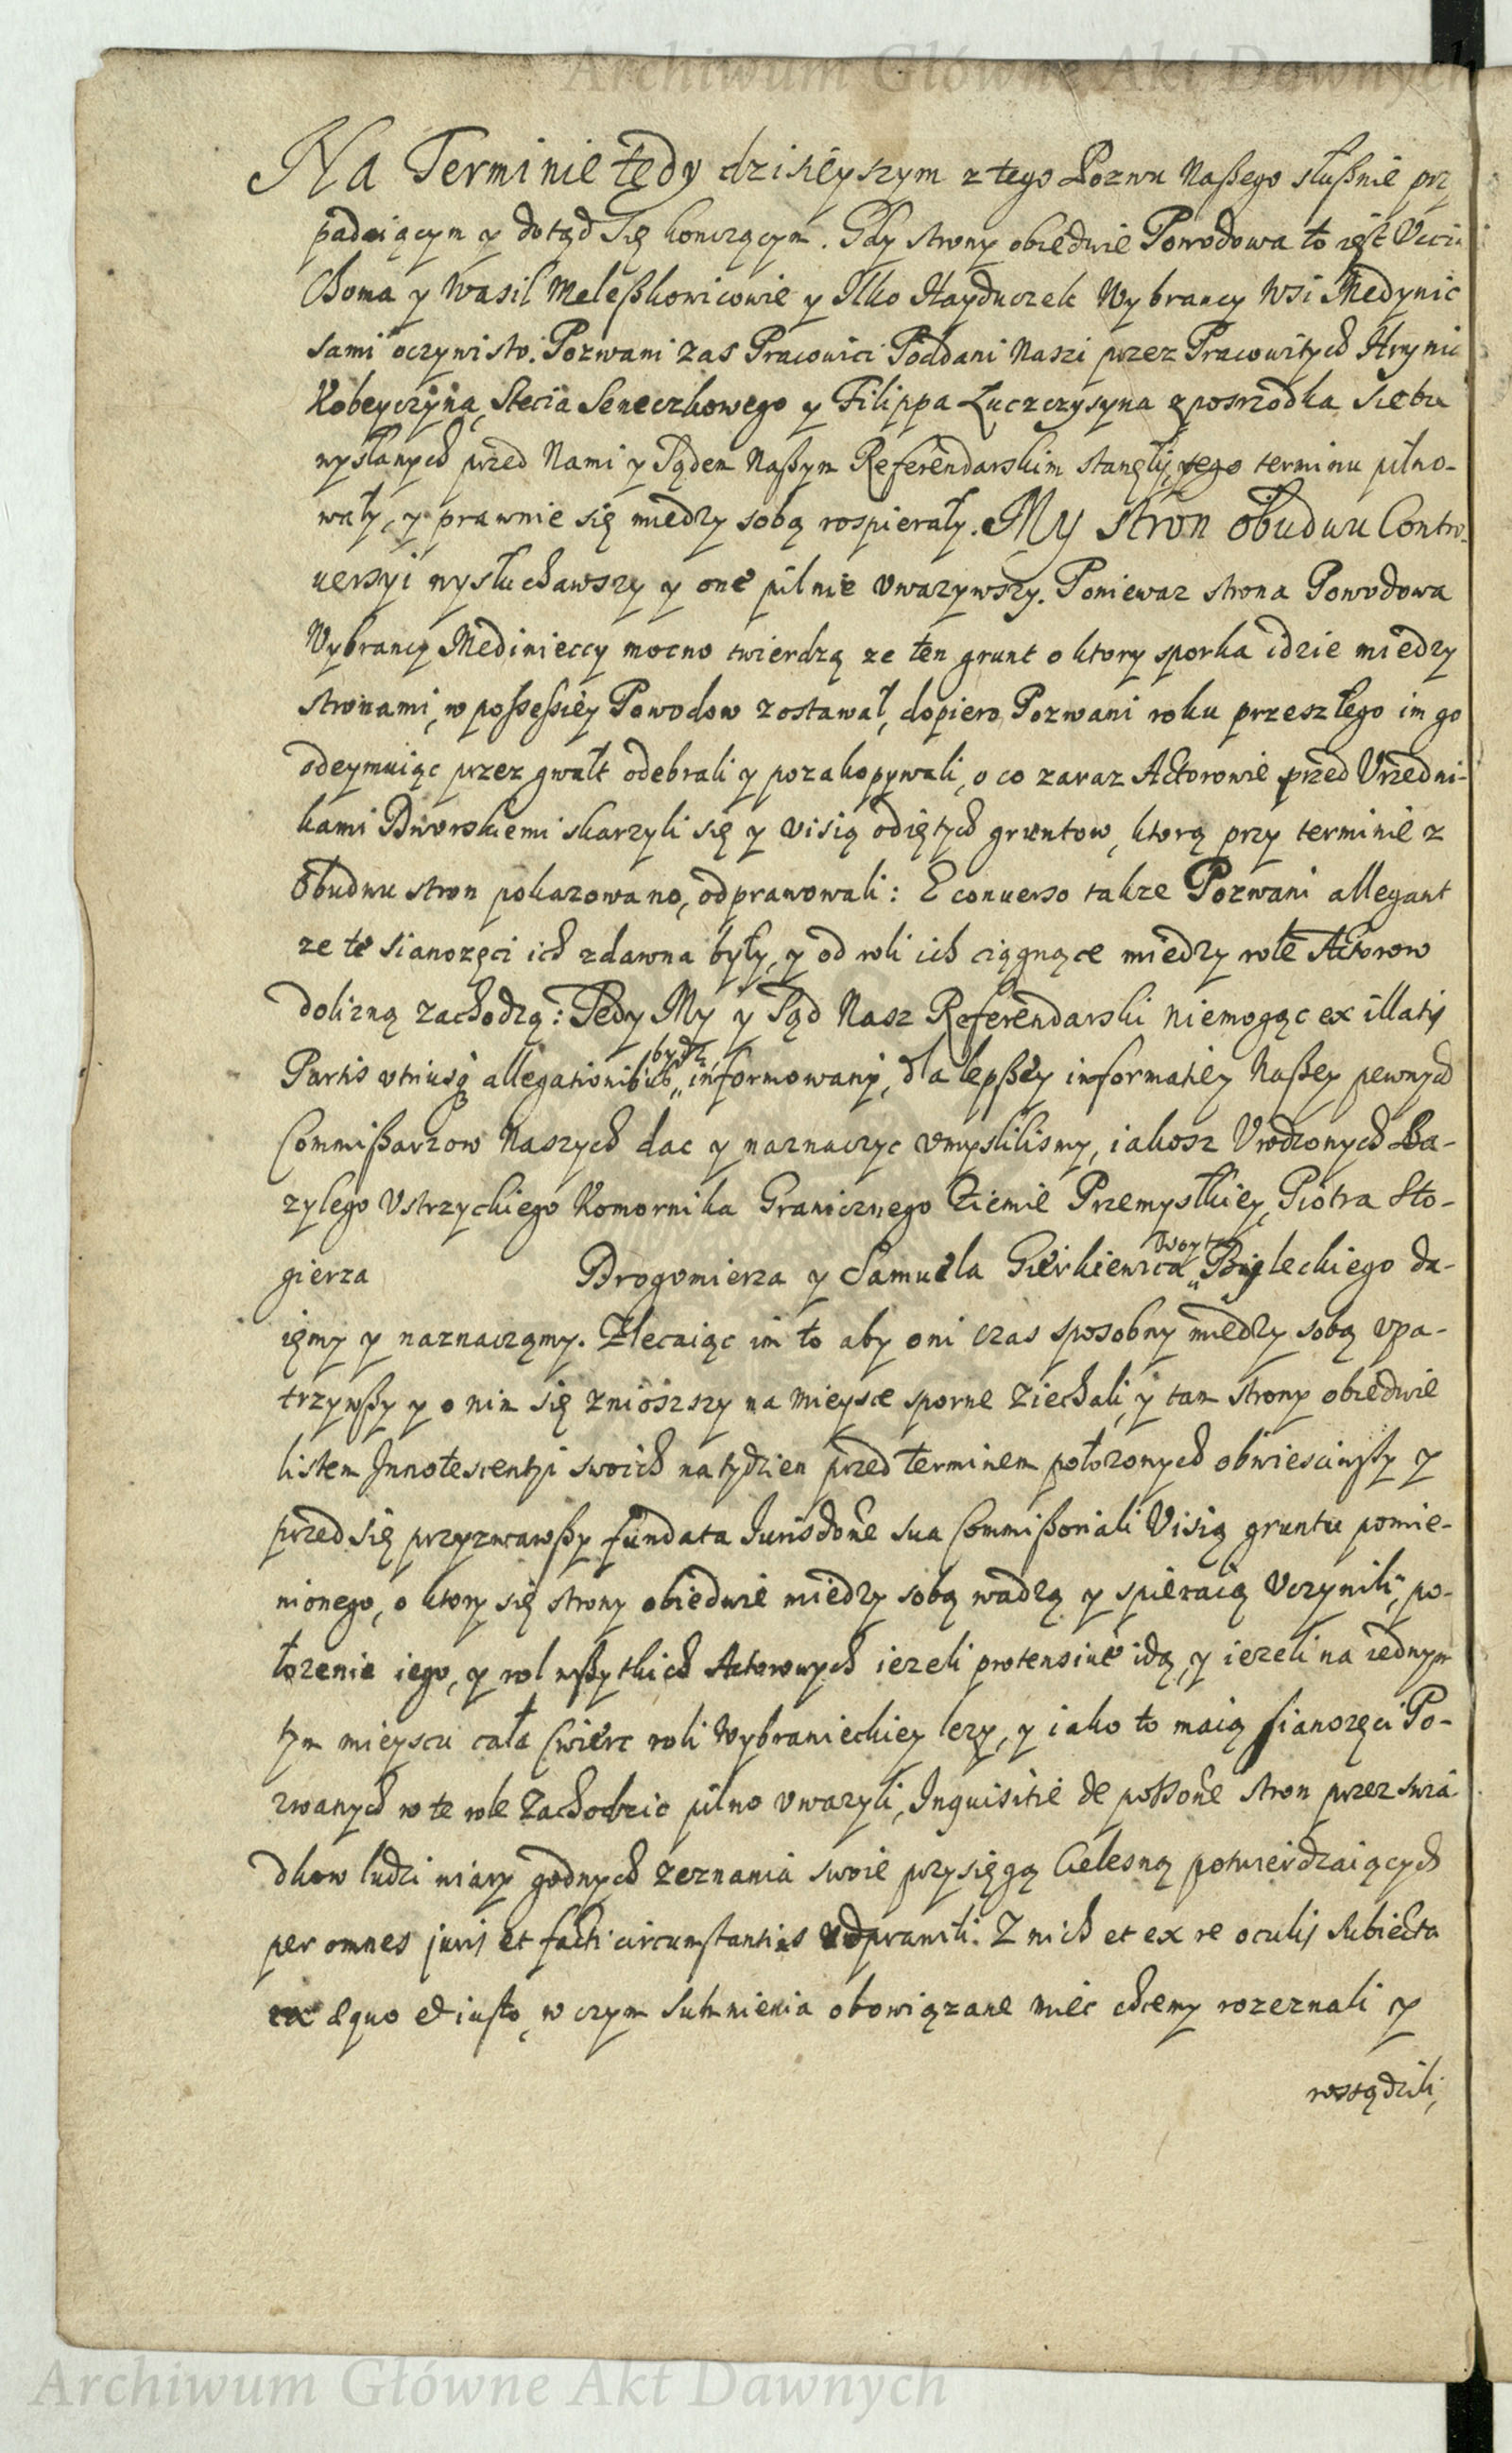 Archiwum Główne Akt Dawnych
Na Terminie tędy dzisieyszym z tego Pozwu Naßego słußnie prz
padaiącym y dotąd się konczącym. Gdy strony obiedwie Powodowa to iest
Choma y Wasil Meleßkowicowie y Ilko Hayduczek Wybrancy Wsi Medynic
sami oczywisto. Pozwani zas Pracowici Poddani Naszi przez Pracowitych Hrynia
Kobeyczyna, Stecia Seneczkowego y Filippa Łuczczysyna z posrzodka siebie
wysłanych przed Nami y Sądem Naßym Referendarskim stanęły, tego terminu pilno-
wały, y prawnie się miedzy sobą rospierały. My stron obudwu Contro-
uersyi wysłuchawszy y one pilnie vwazywszy. Poniewaz strona Powodowa
Wybrancy Medinieccy mocno twierdzą ze ten grunt o ktory sporka idzie miedzy
stronami, w poßeßiey Powodow zostawał, dopiero Pozwani roku przeszłego im go
odeymuiąc przez gwałt odebrali y pozakopywali, o co zaraz Actorowie przed Vrzedni-
kami Dworskiemi skarzyli się y visią odiętych gruntow, ktorą przy terminie z
obudwu stron pokazowano, odprawowali: E conuerso takze Pozwani allegant
ze te sianozęci ich zdawna były, y od roli ich ciągnące miedzy role Actorow
dolizną zachodzą: Tedy My y Sąd Nasz Referendarski niemogąc ex illatis
Partis vtriusq allegationibus bydz informowany, dla lepßey informatiey Naßey pewnych
Commißarzow Naszych dac y naznaczyc vmyslilismy, iakosz Vrodzonych Ba-
zylego Vstrzyckiego Komornika Granicznego Ziemie Przemyskiey, Piotra Sto-
gierza Drogomierza y Samuela Gierkiewica Woyta Bieleckiego da-
iemy y naznaczamy. Zlecaiąc im to aby oni czas sposobny miedzy sobą vpa-
trzywßy y o nim się zniószszy na mieysce sporne ziechali, y tam strony obiedwie
listem Innotescentyi swoich na tydzien przed terminem połozonych obwiesciwßy y
przed się przyzwawßy fundata Jurisdone sua Commißoriali Visią gruntu pomie-
nionego, o ktory się strony obiedwie miedzy sobą wadzą y spieraią Vczynili, po-
łozenie iego, y rol wßytkich Actorowych iezeli protensiue idą, y iezeli na iednym
tym mieyscu cała cwierc roli Wybranieckiey lezy, y iako to maią sianozęci Po-
zwanych w te role zachodzic pilno vwazyli, Inquisitie de poßone stron przez swia-
dkow ludzi wiary godnych zeznania swoie przysięgą cielesną potwierdzaiących
per omnes juris et facti circumstantias odprawili. Z nich et ex re oculis subiecta
ex aequo et iusto, w czym sumnienia obowiązane miec chcemy rozeznali y
rossądzili,
Archiwum Główne Akt Dawnych